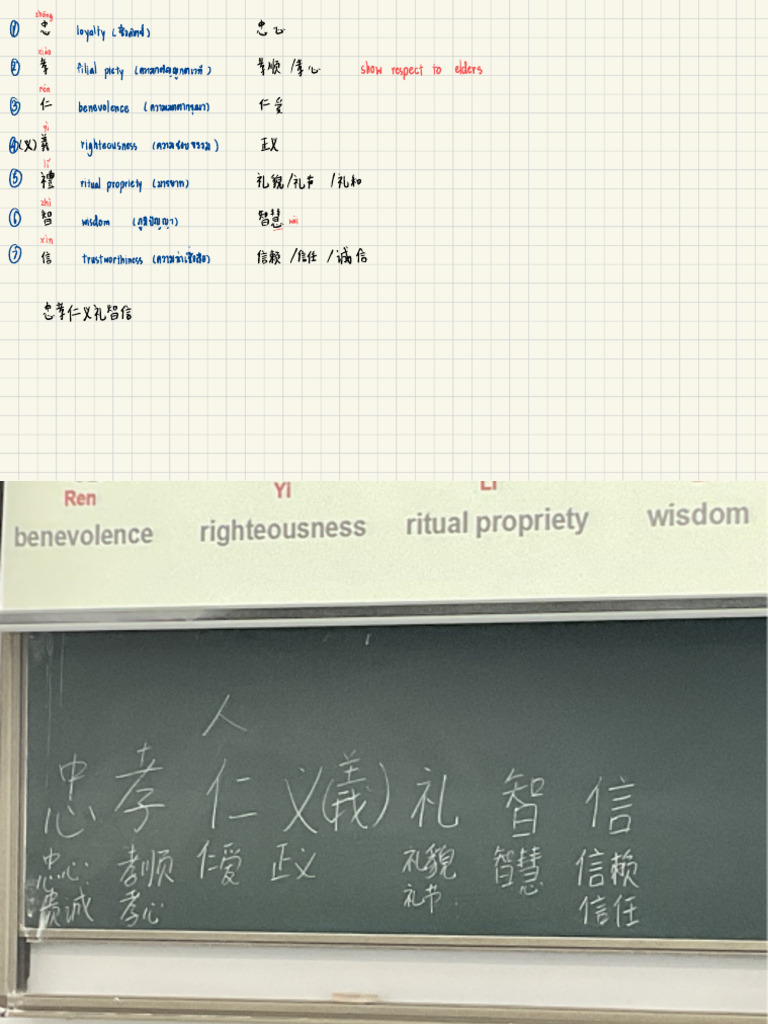 zhōng
① 忠 loyalty (ซื่อสัตย์) 忠心
xiào
② 孝 filial piety (ความกตัญญูกตเวที) 孝順 /孝心 show respect to elders
rén
③ 仁 benevolence (ความเมตตากรุณา) 仁爱
yì
④(义) 義 righteousness (ความชอบธรรม) 正义
lǐ
⑤ 禮 ritual propriety (มารยาท) 礼貌/礼节 /礼和
zhì
⑥ 智 wisdom (ภูมิปัญญา) 智慧
xìn
⑦ 信 trustworthiness (ความน่าเชื่อถือ) 信赖 /信任 /诚信
忠孝仁义礼智信
Ren Yi Li
benevolence righteousness ritual propriety wisdom
人
忠 孝 仁 义(義) 礼 智 信
忠心 孝顺 仁爱 正义 礼貌 智慧 信赖
诚 孝心 礼节 信任